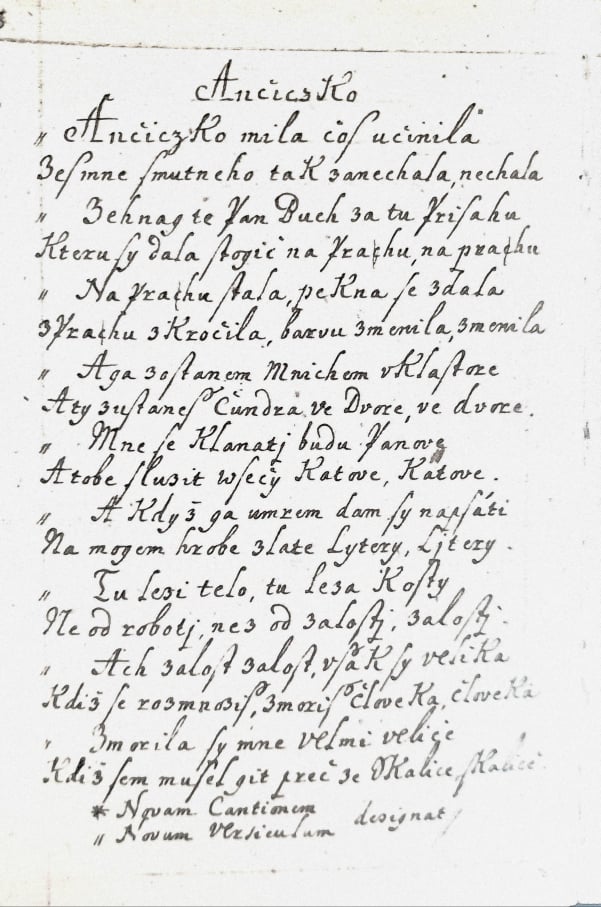 Ančiczko
„ Ančiczko mila čos učinila
Zes mne smutneho tak zanechala, nechala
„ Zehnag te Pan Buch za tu Prisahu
Kteru sy dala stogic na Prachu, na prachu
„ Na Prachu stala, pekna se zdala
z Prachu zkročila, barvu zmenila, zmenila
„ A ga zostanem Mnichem v Klastore
A ty zustanes Čundra ve Dvore, ve dvore.
„ Mne se Klanatj budu Panove
A tobe sluzit wsečy Katove, Katove.
„ A Kdyz ga umrem dam sy napsáti
Na mogem hrobe zlate Lytery, Ljtery.
„ Tu lezi telo, tu leza Kosty
Ne od robotj, nez od zalostj, zalostj.
„ Ach zalost zalost, vsak sy velika
Kdiz se rozmnozis, zmoris človeka, človeka
„ Zmorila sy mne velmi veliče
Kdiz sem musel git preč ze Skalice, skalice.
* Novam Cantionem
„ Novum Versiculum designat